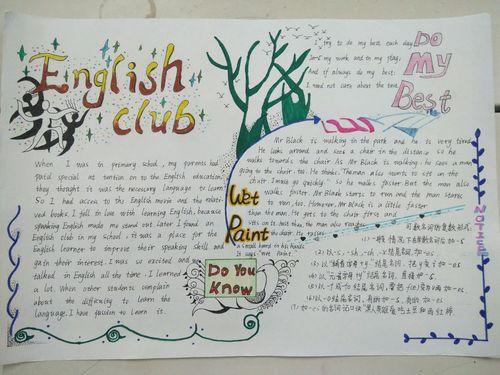 English
club
When I was in primary school, my parents had
paid special at tention on to the English education,
they thought it was the necessary language to learn.
So I had access to the English movie and the relati-
ved books. I fell in love with learning English, because
speaking English made me stand out later I found a
English club in my school. it was a place for the
English learner to improve their speaking skill and
gain their interest. I was so excited and
talked in English all the time. I learned
a lot. When other students complain
about the difficulty to learn the
language, I have passion to learn it.
I try to do my best each day
In my work and in my play,
And if always do my best:
I need not care about the
Do
My
Best
Wet
Paint
Mr Black is walking in the park and he is very tired.
He looks around and sees a chair in the distance so he
walks towards the chair. As Mr Black is walking, he sees a man
going to the chair, too. He thinks, The man also wants to sit on the
chair. I must go quickly." So he walks faster. But the man also
walks faster. Mr Black starts to run and the man starts
to run, too. However, Mr Black is a little faster
than the man. He gets to the chair first and
sits on it. Just then, the man also
the chair. He
a small board in his hand.
It says "Wet Paint"
Do You
Know
NOTES
可数名词的复数形式:
(1)一般情况下在单数名词后加-s.
(2)以-s,-sh,-ch,-x结尾名词,加-es
(3)以"辅音字母+y"结尾名词,把y变i加-es
(4)以"元音字母+y"结尾名词,直接加-s.
(5)以-f或-fe结尾名词,要把f(e)变为v再加-es
(6)以-o结尾名词,有的加-s,有的加-es
(7)加-es的名词记口诀"黑人英雄爱吃土豆和西红柿